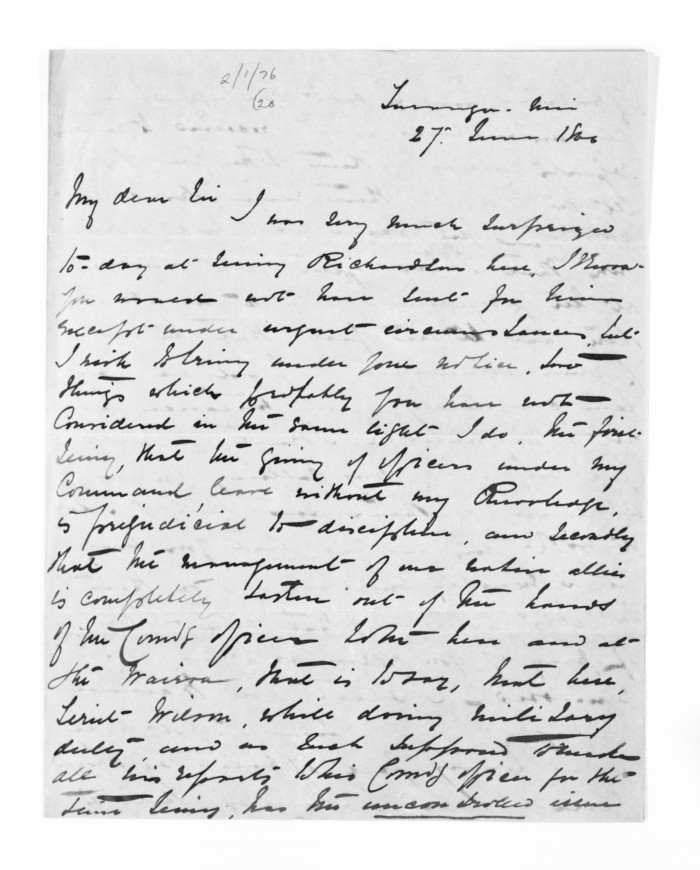 2/1/76
(20
Turanga-nui
27th June 1866
My dear Sir
I was very much surprised
to-day at seeing Richardson here, I know
you would not have sent for him
except under urgent circumstances, but
I wish to bring under your notice, two
things which probably you have not
Considered in the same light I do, the first
being, that the giving of officers under my
Command, leave without my Knowledge,
is prejudicial to discipline, and secondly
that the management of our native allies
is completely taken out of the hands
of the Comdg officer both here and at
the Wairoa, that is to say, that here,
Lieut Wilson, while doing military
duty, and as such supposed to make
all his reports to his Comdg officer for the
time being, has the uncontrolled issue